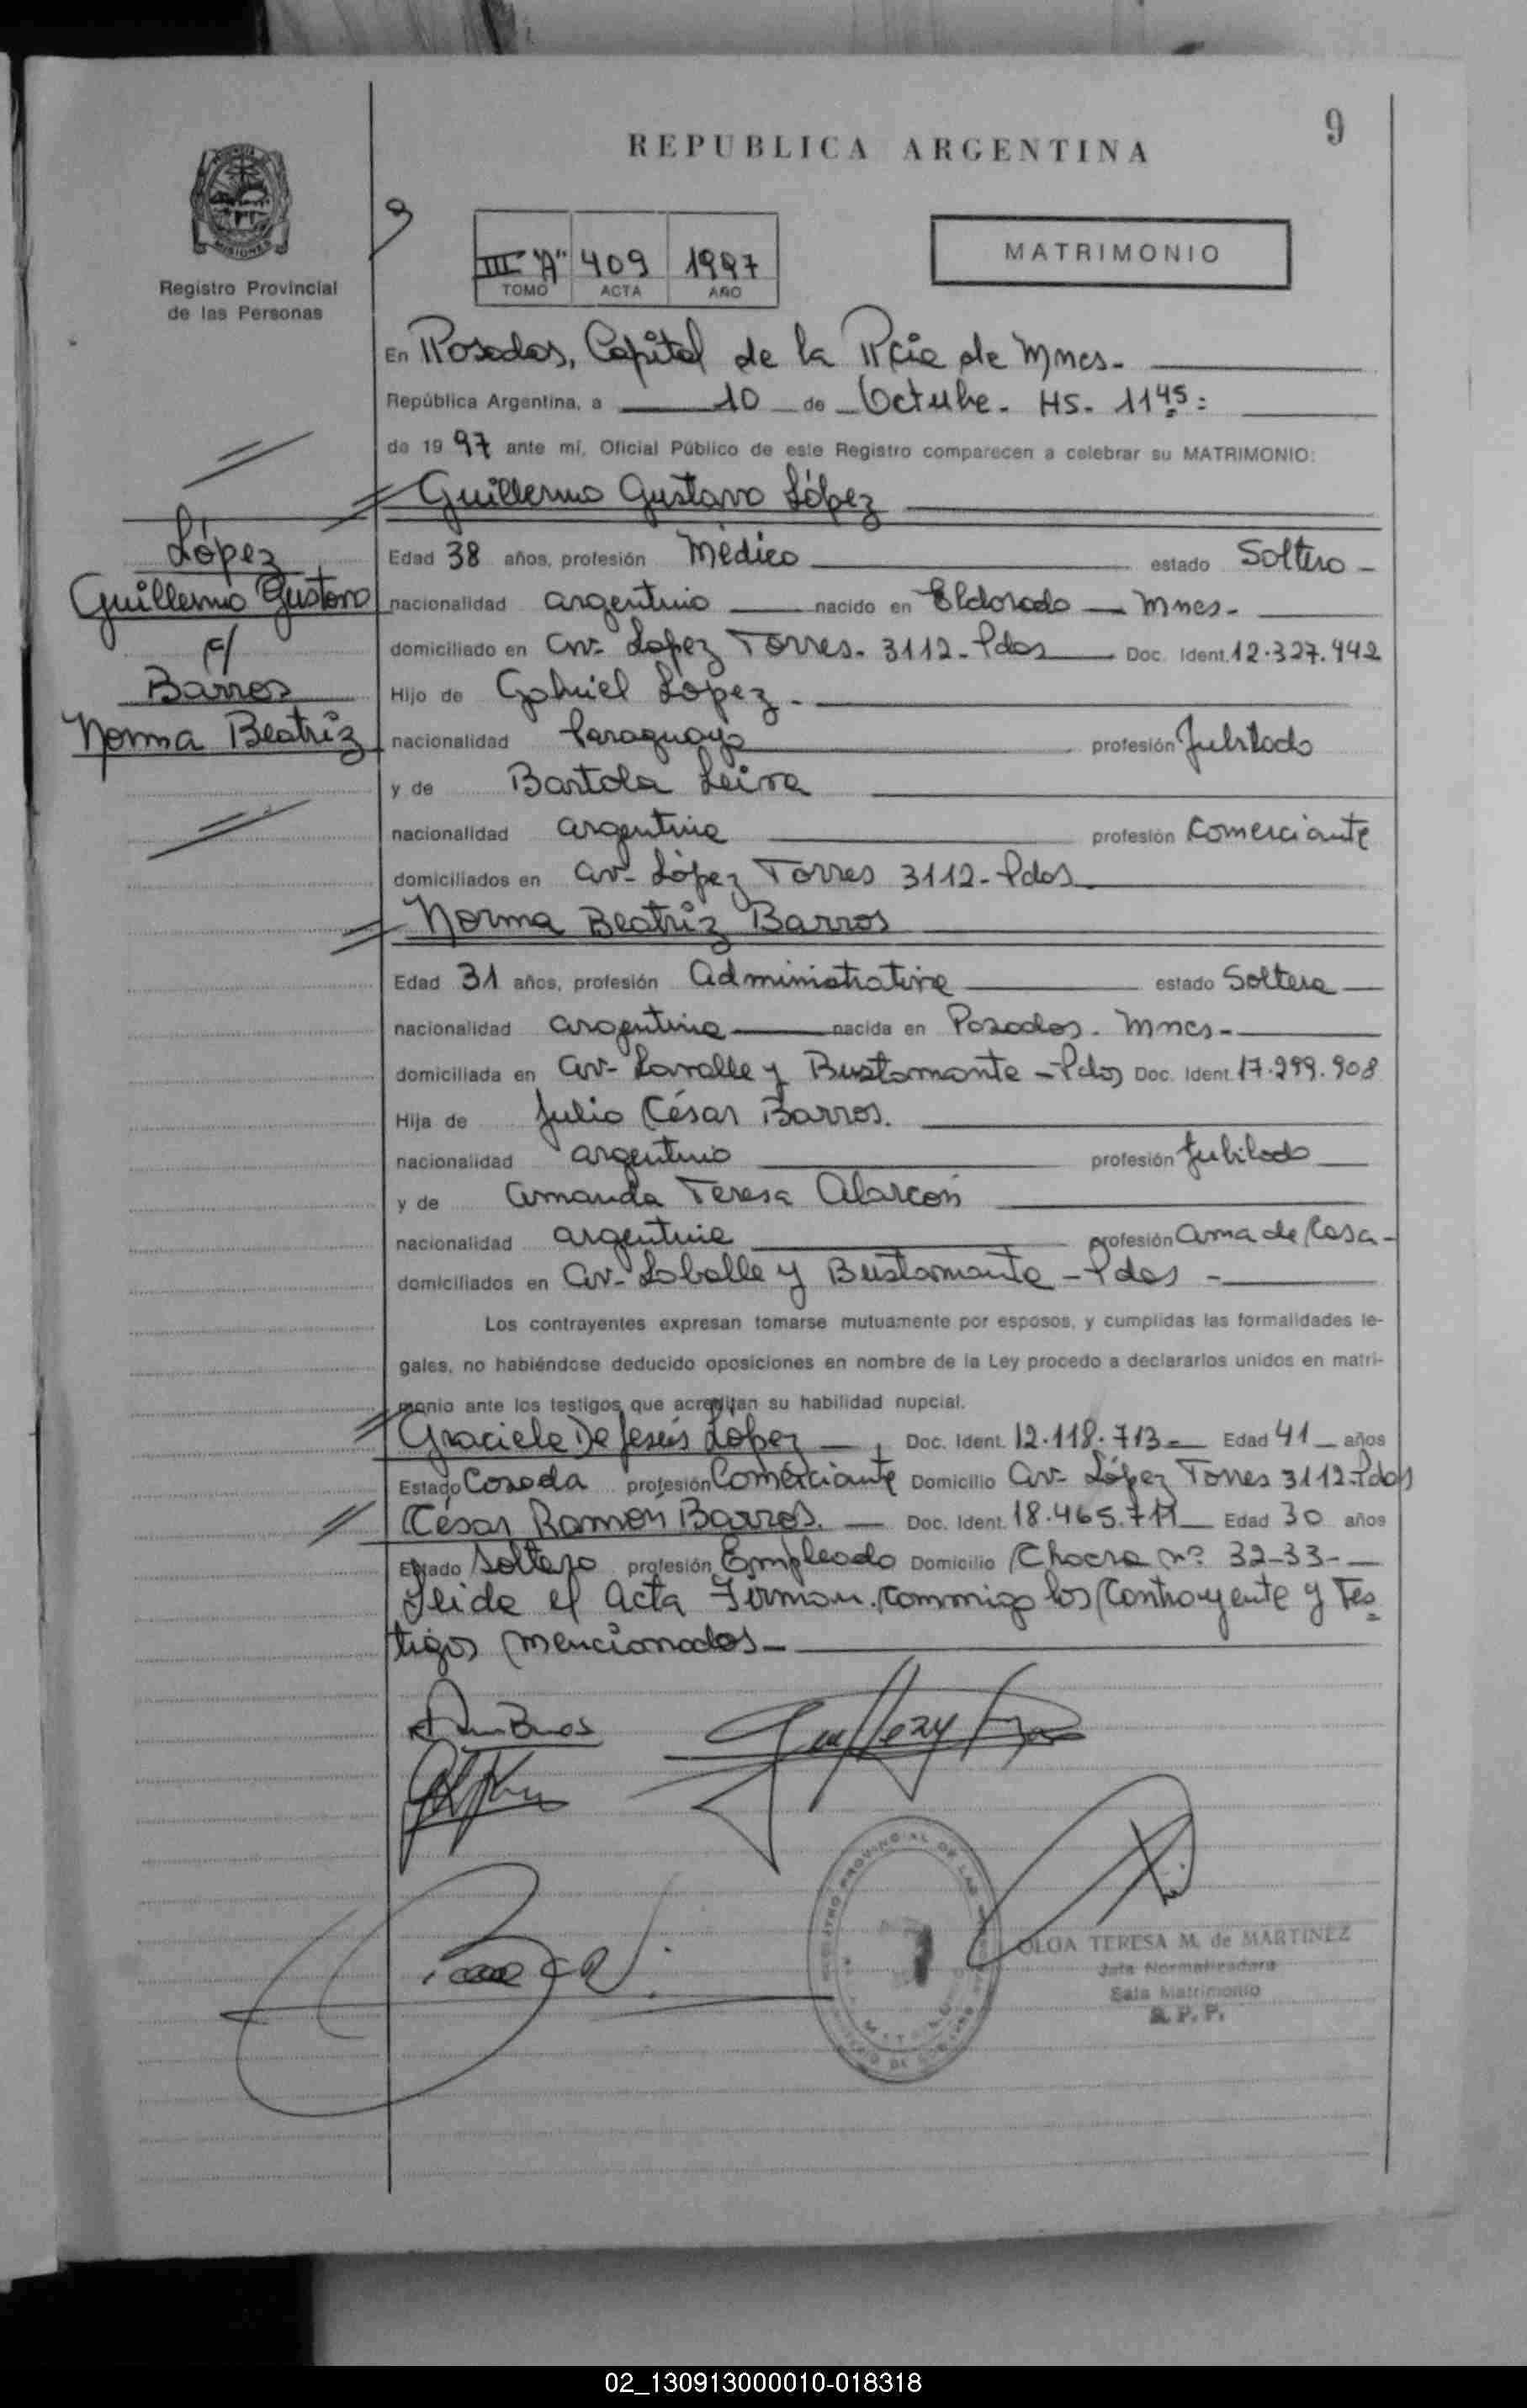 9
REPUBLICA ARGENTINA
9
III "A" 409 1997
TOMO ACTA AÑO
MATRIMONIO
Registro Provincial
de las Personas
En Posadas, Capital de la Pcia de Mnes.
República Argentina, a 10 de Octubre. HS. 11 45:
de 19 97 ante mí, Oficial Público de este Registro comparecen a celebrar su MATRIMONIO:
Guillermo Gustavo López
López
Guillermo Gustavo
c/
Barros
Norma Beatriz
Edad 38 años, profesión Médico estado Soltero
nacionalidad argentino nacido en Eldorado - Mnes-
domiciliado en av- Lopez Torres. 3112- Pdas Doc. Ident. 12.327.442
Hijo de Gabriel López
nacionalidad Paraguayo profesión Jubilado
y de Bartola Leiva
nacionalidad argentina profesión Comerciante
domiciliados en av- López Torres 3112- Pdas
Norma Beatriz Barros
Edad 31 años, profesión administrativa estado Soltera
nacionalidad argentina nacida en Posadas. Mnes-
domiciliada en av- Lavalle y Bustamante - Pdas Doc. Ident. 17.299.908
Hija de Julio César Barros.
nacionalidad argentino profesión Jubilado
y de Amanda Teresa Alarcón
nacionalidad argentina profesión ama de Casa-
domiciliados en av- Laballe y Bustamante - Pdas -
Los contrayentes expresan tomarse mutuamente por esposos, y cumplidas las formalidades le-
gales, no habiéndose deducido oposiciones en nombre de la Ley procedo a declararlos unidos en matri-
monio ante los testigos que acreditan su habilidad nupcial.
Graciela De Jesús López Doc. Ident. 12.118.713 Edad 41 años
Estado Casada profesión Comerciante Domicilio av- López Torres 3112-Pdas
César Ramón Barros. Doc. Ident. 18.465.711 Edad 30 años
Estado Soltero profesión Empleado Domicilio Chacra nº 32-33-
Leida el acta Firman conmigo los Contrayente y Tes
tigos mencionados
OLGA TERESA M. de MARTINEZ
Jefa Normalizadora
Sala Matrimonio
R. P. P.
02_130913000010-018318